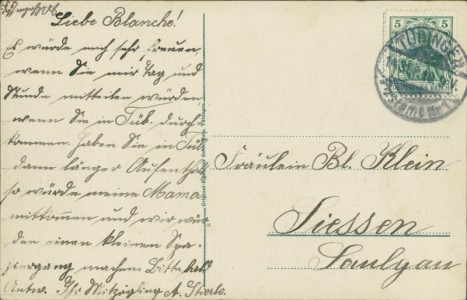 Liebe Blanche!
Es würde mich sehr freuen
wenn Sie mir Tag und
Stunde mitteilen würden
wenn Sie in Tüb. durch
kommen. Haben Sie in Tüb
dann länger Aufenthalt
so würde meine Mama
mitkommen und wir wür
den einen kleinen Spa
ziergang machen. Bitte bald
Antw. Ihr Mitzögling A.
5 5
TÜBINGEN
Fräulein Bl. Klein
Siessen
Saulgau